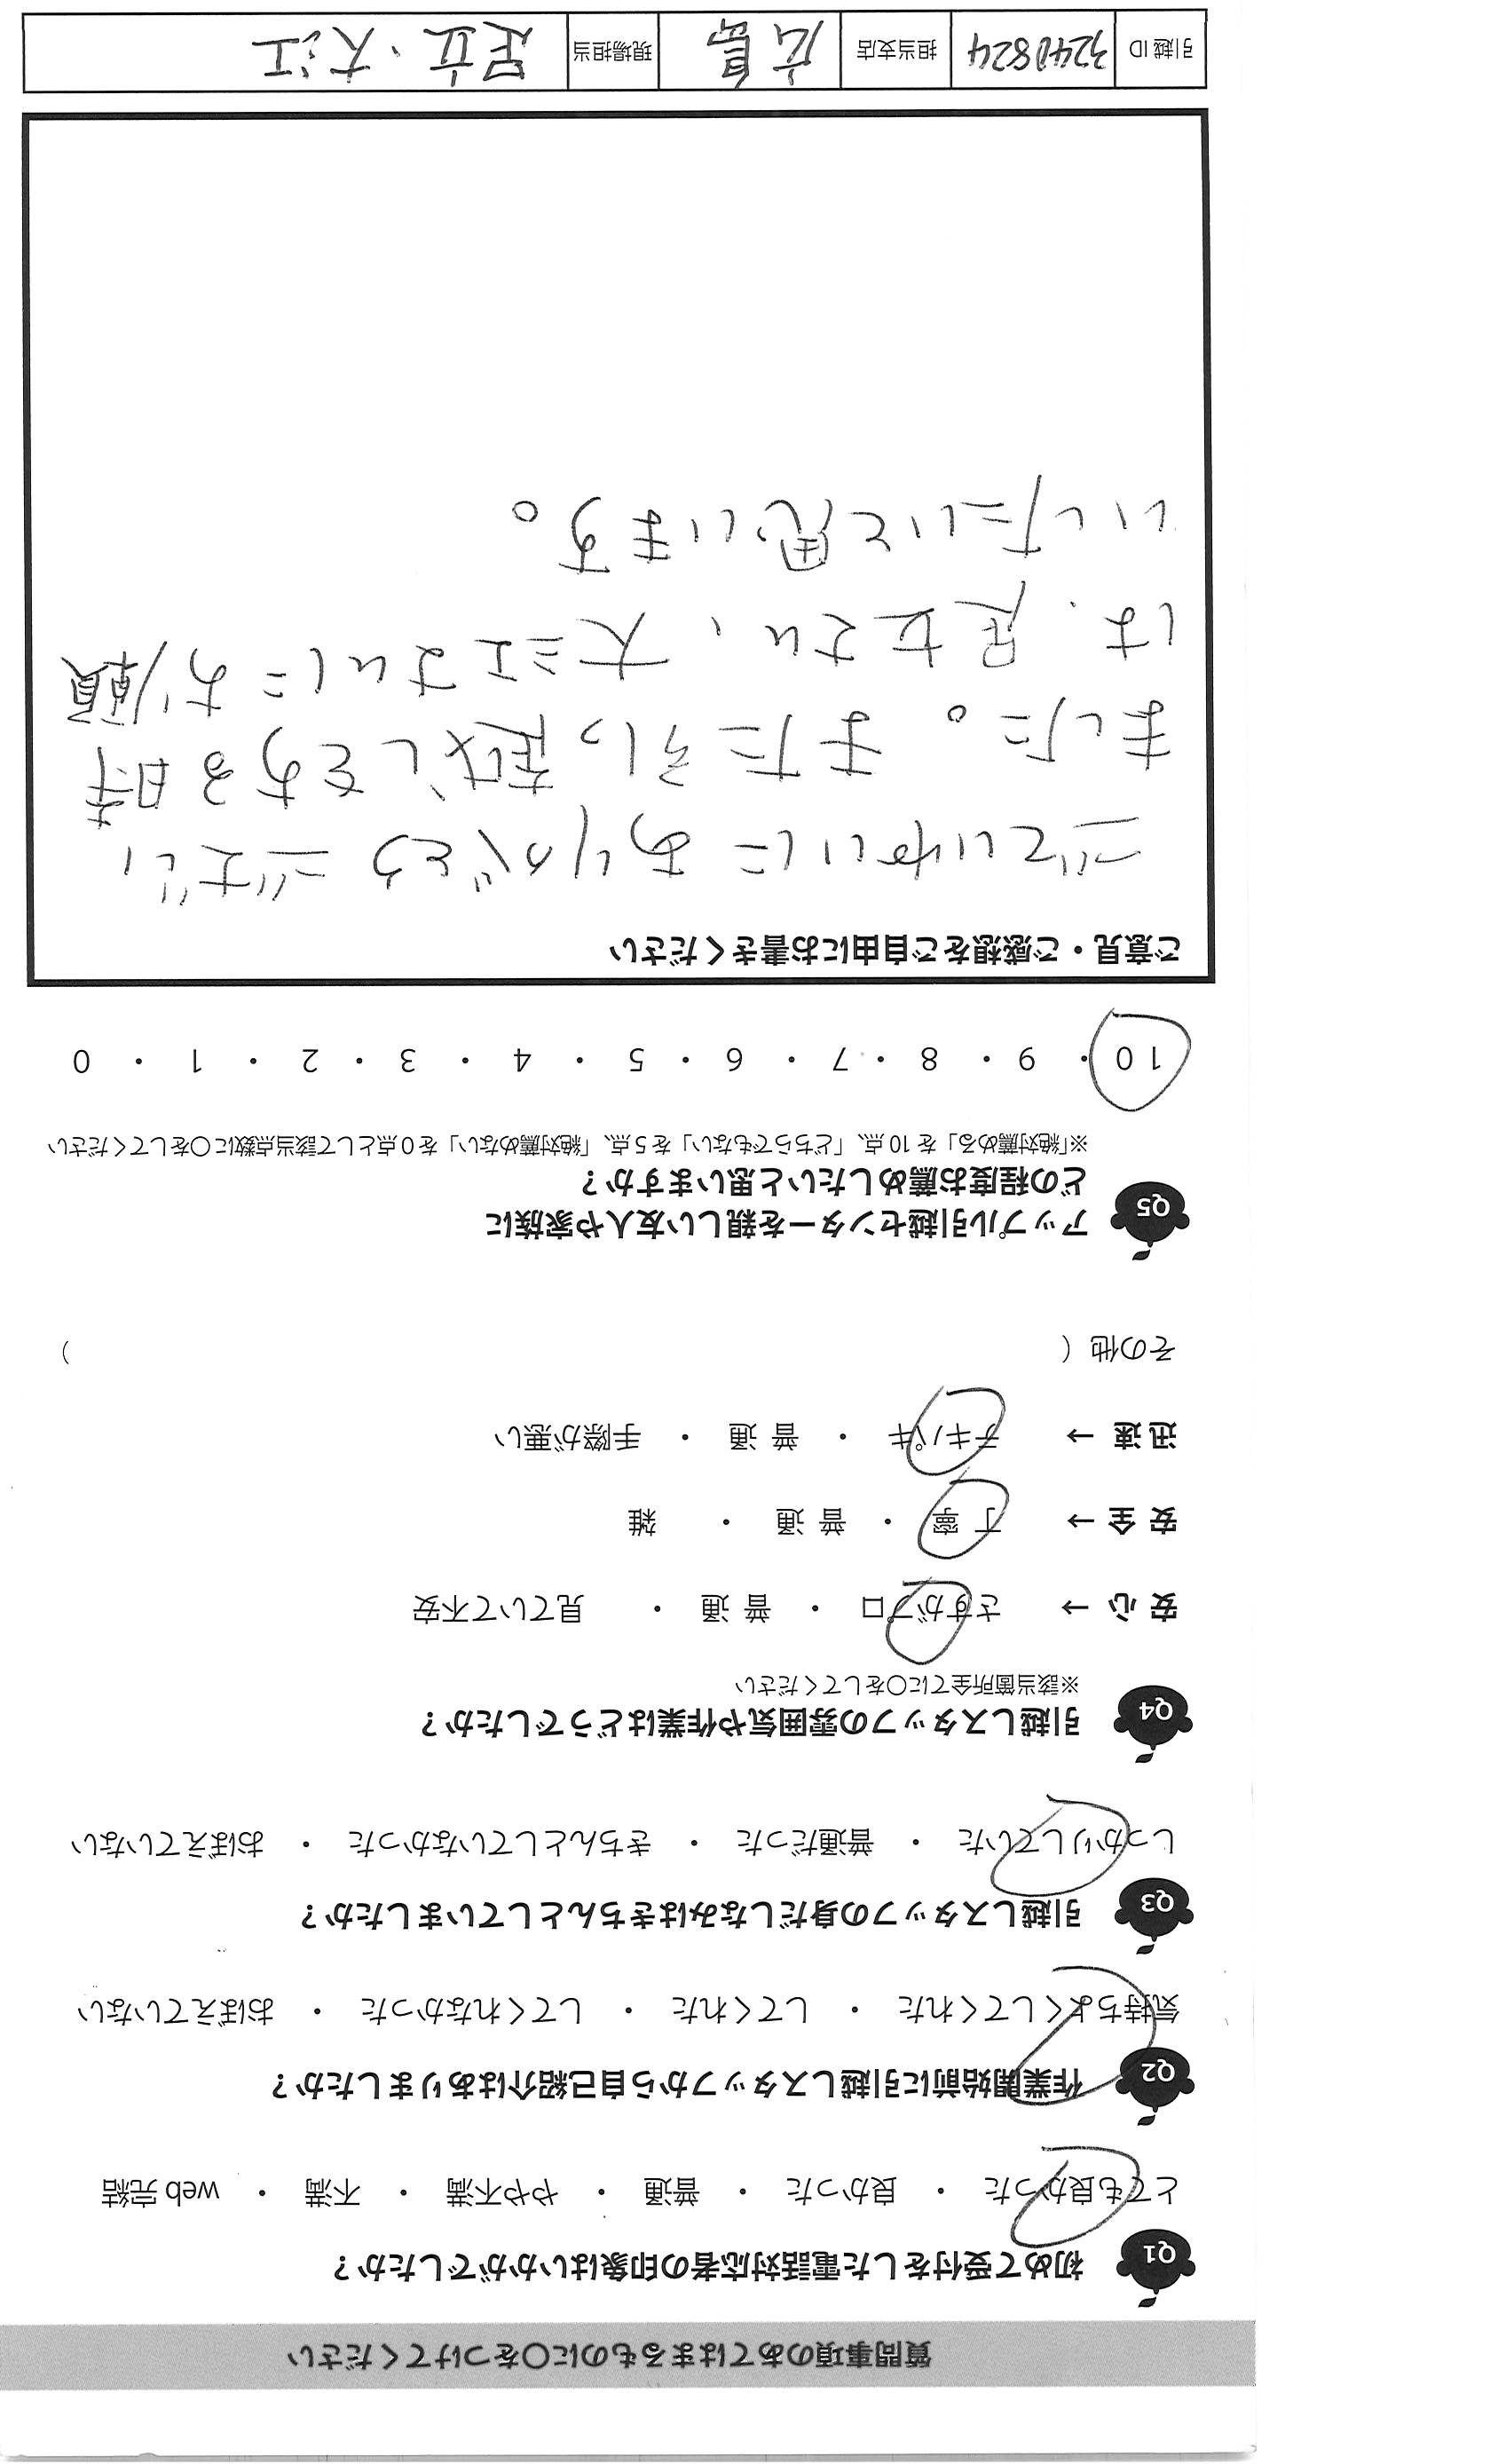 質問事項のあてはまるものに〇をつけてください
Q1 初めて受付をした電話対応者の印象はいかがでしたか？
とても良かった ・ 良かった ・ 普通 ・ やや不満 ・ 不満 ・ web 完結
Q2 作業開始前に引越しスタッフから自己紹介はありましたか？
気持ちよくしてくれた ・ してくれた ・ してくれなかった ・ おぼえていない
Q3 引越しスタッフの身だしなみはきちんとしていましたか？
しっかりしていた ・ 普通だった ・ きちんとしていなかった ・ おぼえていない
Q4 引越しスタッフの雰囲気や作業はどうでしたか？
※該当箇所全てに〇をしてください
安 心 → さすがプロ ・ 普 通 ・ 見ていて不安
安 全 → 丁 寧 ・ 普 通 ・ 雑
迅 速 → テキパキ ・ 普 通 ・ 手際が悪い
その他（ ）
Q5 アップル引越センターを親しい友人や家族に
どの程度お薦めしたいと思いますか？
※「絶対薦める」を 10 点、「どちらでもない」を 5 点、「絶対薦めない」を 0 点として該当点数に〇をしてください
10 ・ 9 ・ 8 ・ 7 ・ 6 ・ 5 ・ 4 ・ 3 ・ 2 ・ 1 ・ 0
ご意見・ご感想をご自由にお書きください
ごていねいに ありがとう ございい
ました。 また引っ越しをある時
は、足立さん、大江さんにお願
いしたいと思います。
引越 ID 3240824 担当支店 広島 現場担当 足立・大江